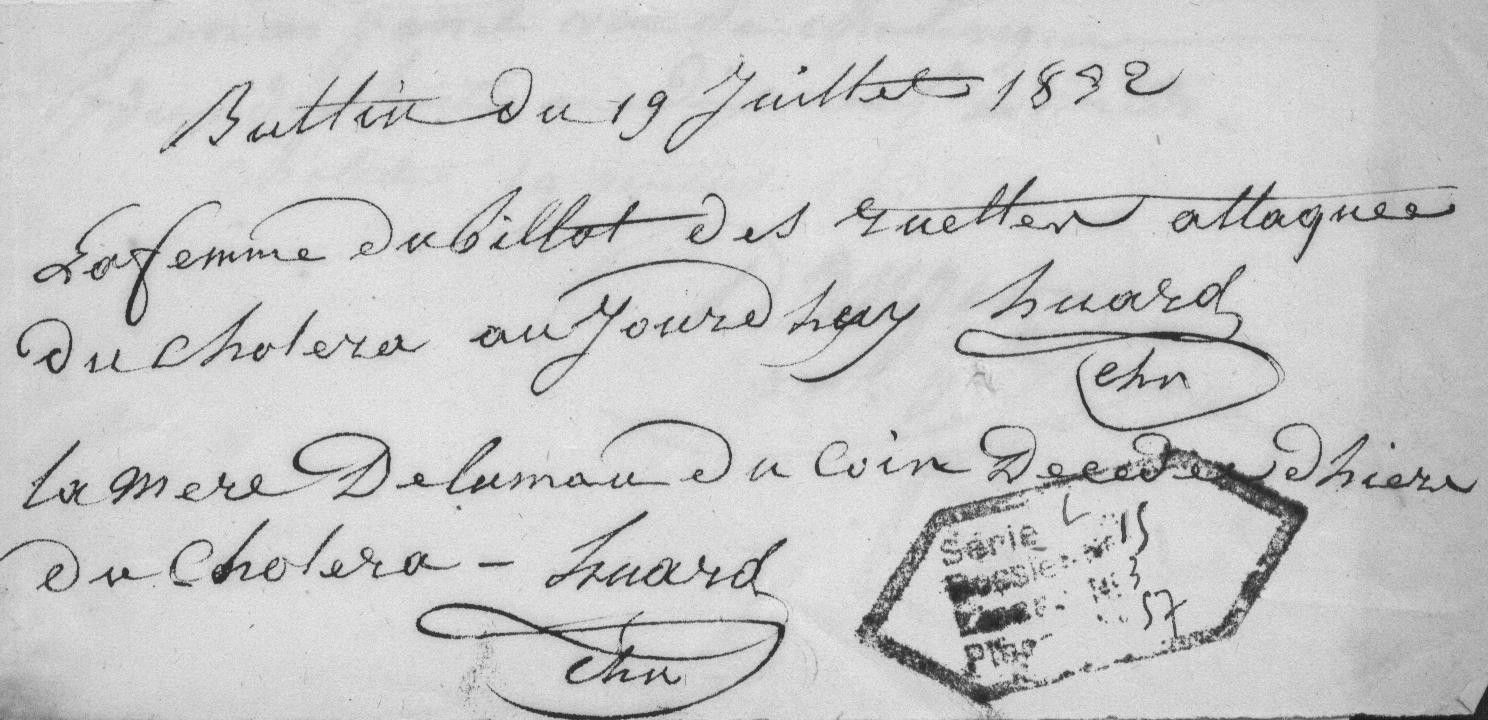 Buttin du 19 Juillet 1832
La femme dubillot des ruetter attaquee
du cholera au Jourdhuy huard
chr
la mere Delumau du coin Decedee dhiere
du Cholera - huard
chr
Série L
Dossier 15
N° 3
57